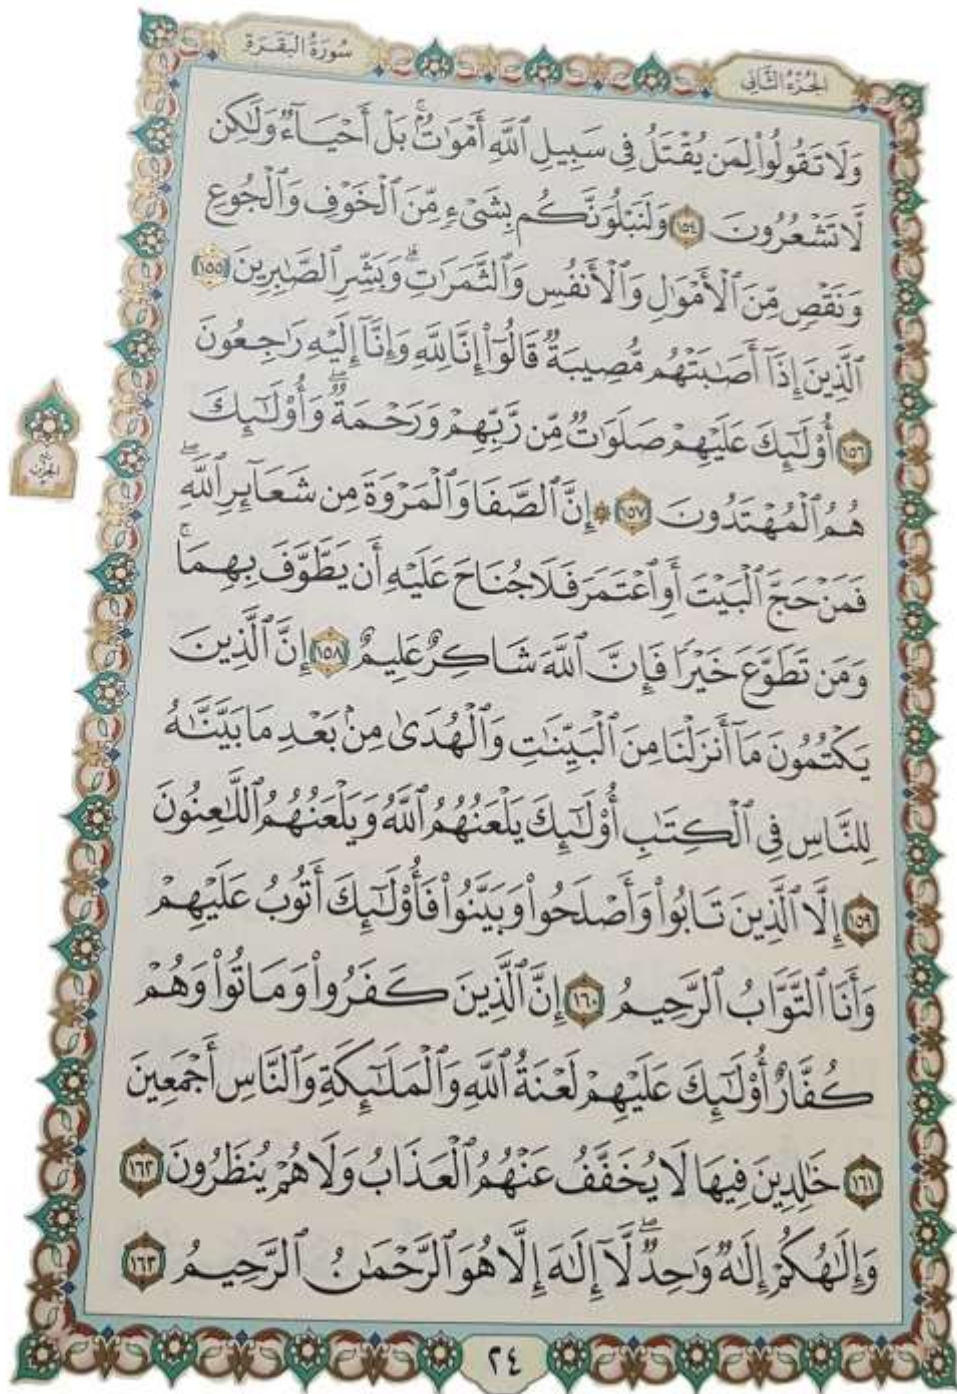 سُورَةُ البَقَرَةِ
الجُزْءُ الثَّانِي
وَلَا تَقُولُوا۟ لِمَن يُقْتَلُ فِى سَبِيلِ ٱللَّهِ أَمْوَٰتٌۢ ۚ بَلْ أَحْيَآءٌ وَلَٰكِن
لَّا تَشْعُرُونَ ١٥٤ وَلَنَبْلُوَنَّكُم بِشَىْءٍ مِّنَ ٱلْخَوْفِ وَٱلْجُوعِ
وَنَقْصٍ مِّنَ ٱلْأَمْوَٰلِ وَٱلْأَنفُسِ وَٱلثَّمَرَٰتِ ۗ وَبَشِّرِ ٱلصَّٰبِرِينَ ١٥٥
ٱلَّذِينَ إِذَآ أَصَٰبَتْهُم مُّصِيبَةٌ قَالُوٓا۟ إِنَّا لِلَّهِ وَإِنَّآ إِلَيْهِ رَٰجِعُونَ
١٥٦ أُو۟لَٰٓئِكَ عَلَيْهِمْ صَلَوَٰتٌ مِّن رَّبِّهِمْ وَرَحْمَةٌ ۖ وَأُو۟لَٰٓئِكَ
هُمُ ٱلْمُهْتَدُونَ ١٥٧ ۞ إِنَّ ٱلصَّفَا وَٱلْمَرْوَةَ مِن شَعَآئِرِ ٱللَّهِ ۖ
فَمَنْ حَجَّ ٱلْبَيْتَ أَوِ ٱعْتَمَرَ فَلَا جُنَاحَ عَلَيْهِ أَن يَطَّوَّفَ بِهِمَا ۚ
وَمَن تَطَوَّعَ خَيْرًا فَإِنَّ ٱللَّهَ شَاكِرٌ عَلِيمٌ ١٥٨ إِنَّ ٱلَّذِينَ
يَكْتُمُونَ مَآ أَنزَلْنَا مِنَ ٱلْبَيِّنَٰتِ وَٱلْهُدَىٰ مِنۢ بَعْدِ مَا بَيَّنَّٰهُ
لِلنَّاسِ فِى ٱلْكِتَٰبِ أُو۟لَٰٓئِكَ يَلْعَنُهُمُ ٱللَّهُ وَيَلْعَنُهُمُ ٱللَّٰعِنُونَ
١٥٩ إِلَّا ٱلَّذِينَ تَابُوا۟ وَأَصْلَحُوا۟ وَبَيَّنُوا۟ فَأُو۟لَٰٓئِكَ أَتُوبُ عَلَيْهِمْ
وَأَنَا ٱلتَّوَّابُ ٱلرَّحِيمُ ١٦٠ إِنَّ ٱلَّذِينَ كَفَرُوا۟ وَمَاتُوا۟ وَهُمْ
كُفَّارٌ أُو۟لَٰٓئِكَ عَلَيْهِمْ لَعْنَةُ ٱللَّهِ وَٱلْمَلَٰٓئِكَةِ وَٱلنَّاسِ أَجْمَعِينَ
١٦١ خَٰلِدِينَ فِيهَا لَا يُخَفَّفُ عَنْهُمُ ٱلْعَذَابُ وَلَا هُمْ يُنظَرُونَ ١٦٢
وَإِلَٰهُكُمْ إِلَٰهٌ وَٰحِدٌ ۖ لَّآ إِلَٰهَ إِلَّا هُوَ ٱلرَّحْمَٰنُ ٱلرَّحِيمُ ١٦٣
٢٤